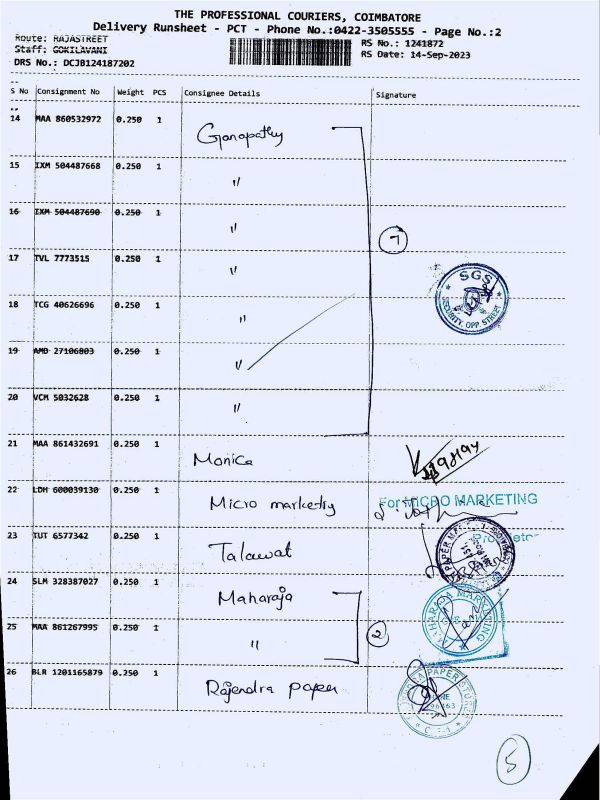 THE PROFESSIONAL COURIERS, COIMBATORE
Delivery Runsheet - PCT - Phone No.:0422-3505555 - Page No.:2
Route: RAJASTREET
RS No.: 1241872
Staff: GOKILAVANI
RS Date: 14-Sep-2023
DRS No.: DCJB124187202
S No Consignment No Weight PCS Consignee Details Signature
14 MAA 860532972 0.250 1 Ganapathy
15 IXM 504487668 0.250 1 "
16 IXM 504487690 0.250 1 "
7
17 TVL 7773515 0.250 1 "
SGS
SECURITY. OPP. STREET
18 TCG 40626696 0.250 1 "
19 AMD 27106803 0.250 1 "
20 VCM 5032628 0.250 1 "
21 MAA 861432691 0.250 1 Monica
22 LDH 600039130 0.250 1 Micro marketry
For MICRO MARKETING
23 TUT 6577342 0.250 1 Talawat
24 SLM 328387027 0.250 1 Maharaja
25 MAA 861267995 0.250 1 "
2
26 BLR 1201165879 0.250 1 Rajendra paper
5